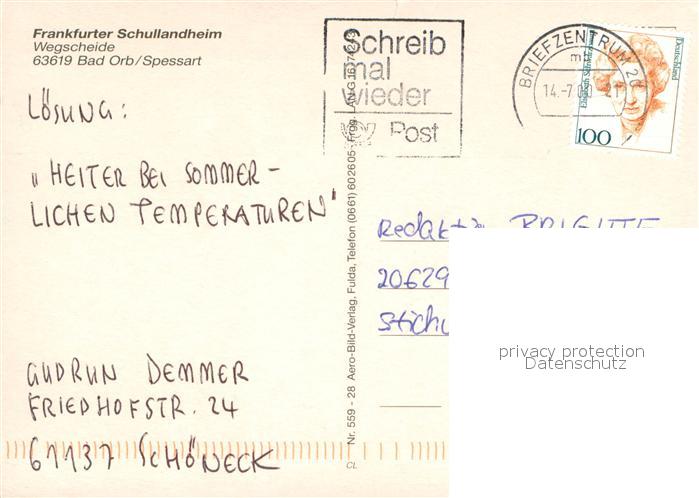 Frankfurter Schullandheim
Wegscheide
63619 Bad Orb/Spessart
Lösung:
"HEITER BEI SOMMER-
LICHEN TEMPERATUREN"
GUDRUN DEMMER
FRIEDHOFSTR. 24
61137 SCHÖNECK
Nr. 559 - 28 Aero-Bild-Verlag, Fulda, Telefon (0661) 602605
CL
Schreib
mal
wieder
Post
BRIEFZENTRUM
mb
14.-7.00 21
Deutschland
100
Redaktion BRIGITTE
20629
privacy protection
Datenschutz